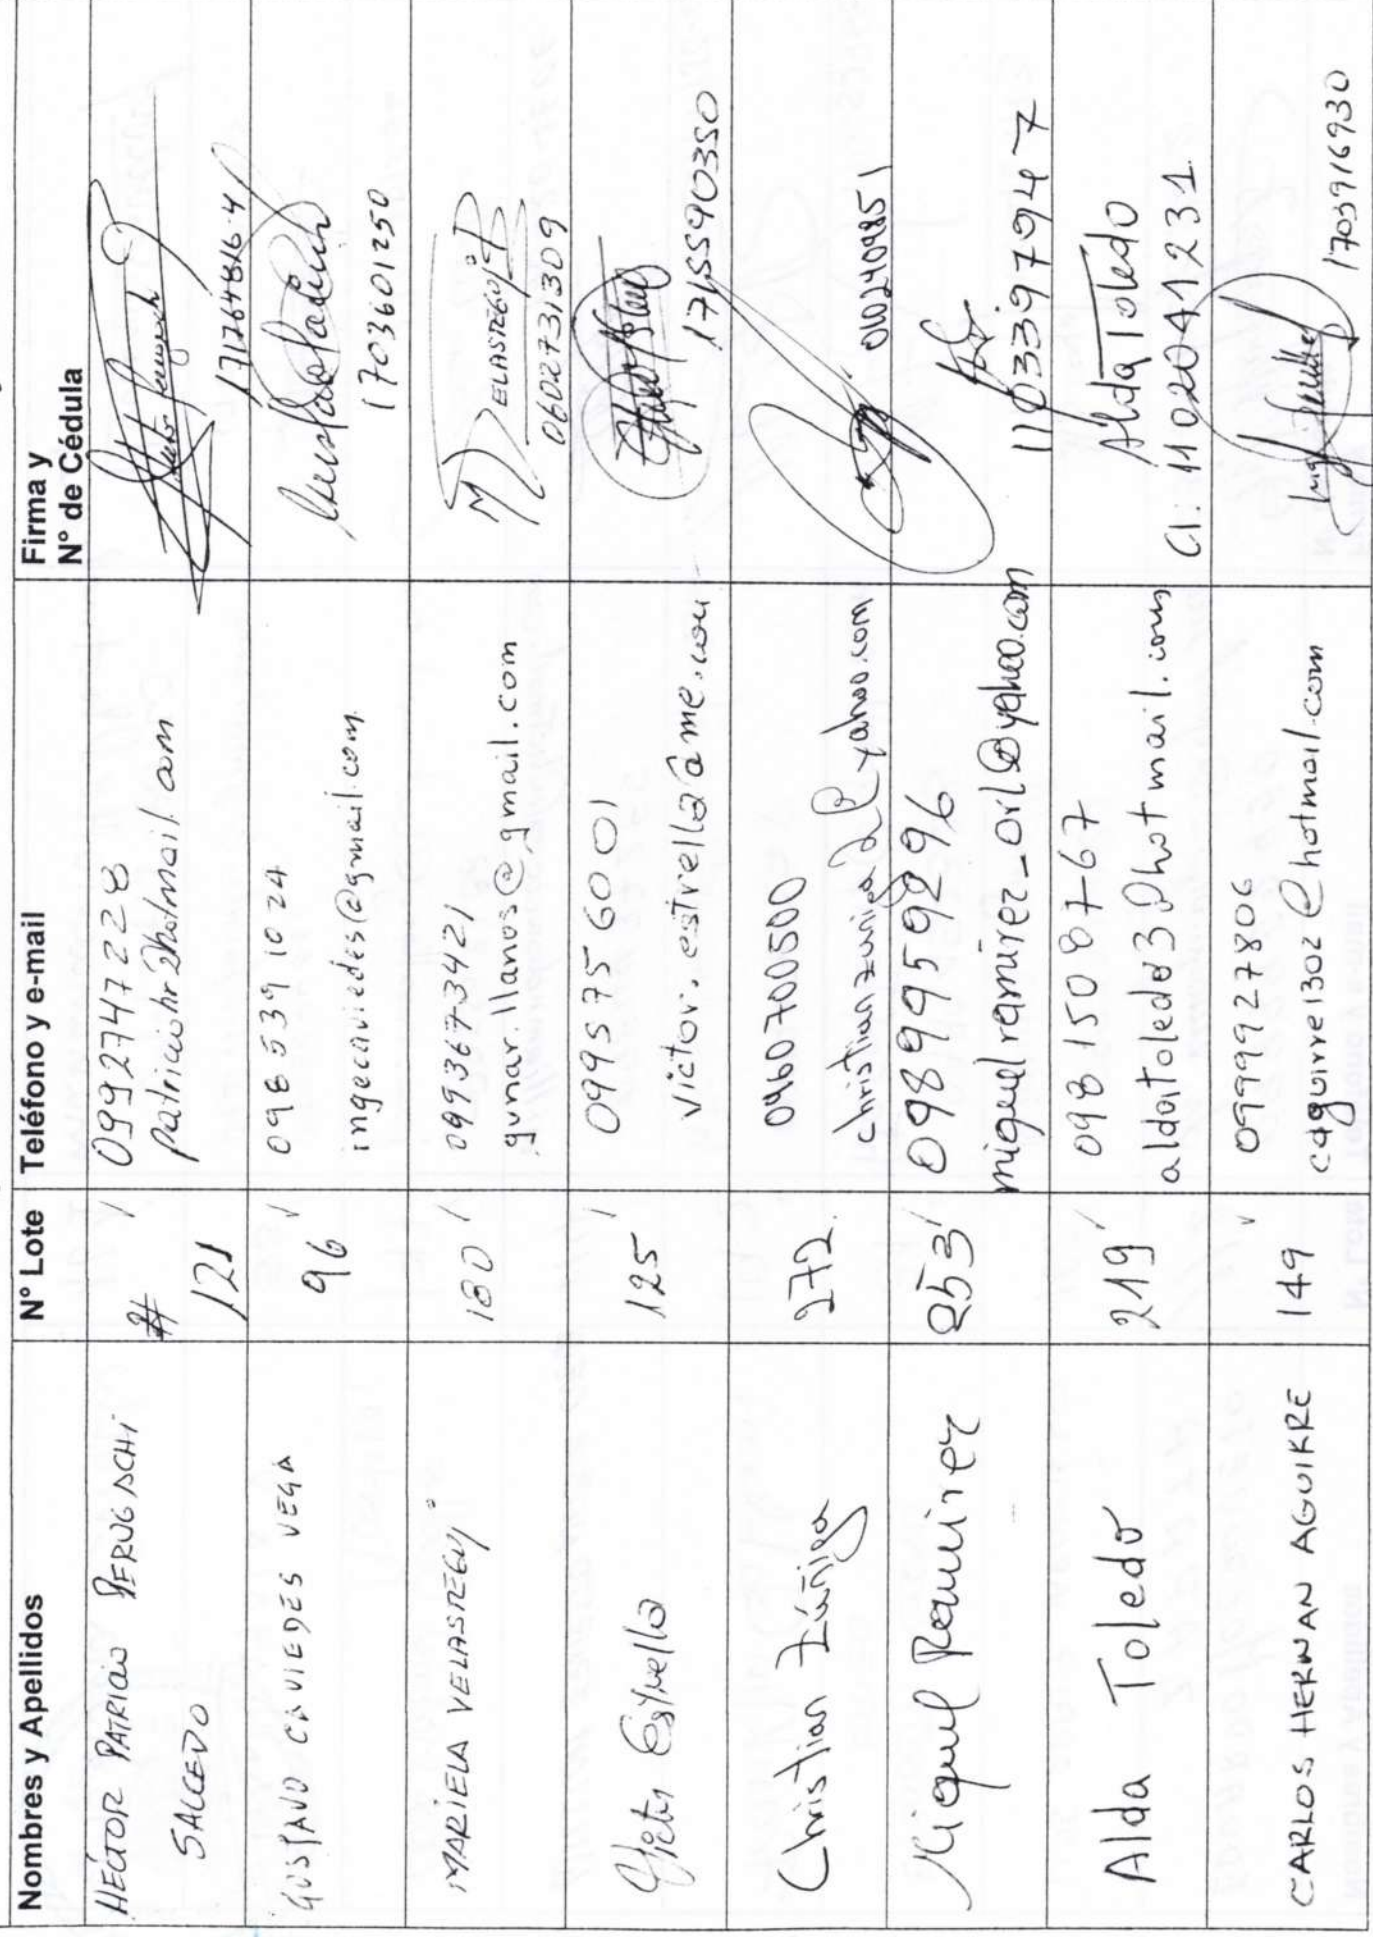 Nombres y Apellidos
N° Lote
Teléfono y e-mail
Firma y
N° de Cédula
HECTOR PATRICIO PERUGACHI
SALCEDO
#
121
0992747228
171264816-4
GUSTAVO CAVIEDES VEGA
96
098 539 1024
ingecaviedes@gmail.com
1703601250
MARIELA VELASTEGUI
180
0993673421
gunar.llanos@gmail.com
VELASTEGUI
0602731309
Victor Estrella
125
099575 6001
victor.estrella@me.com
Christian Zúñiga
272.
0960700500
0102409851
Miguel Ramirez
253
miguelramirez_oril@yahoo.com
1103397947
Alda Toledo
219
098 150 8767
aldatoledo3@hotmail.com
Alda Toledo
CI: 1102041231
CARLOS HERNAN AGUIRRE
149
0999927806
caguirre1302@hotmail.com
1703916930